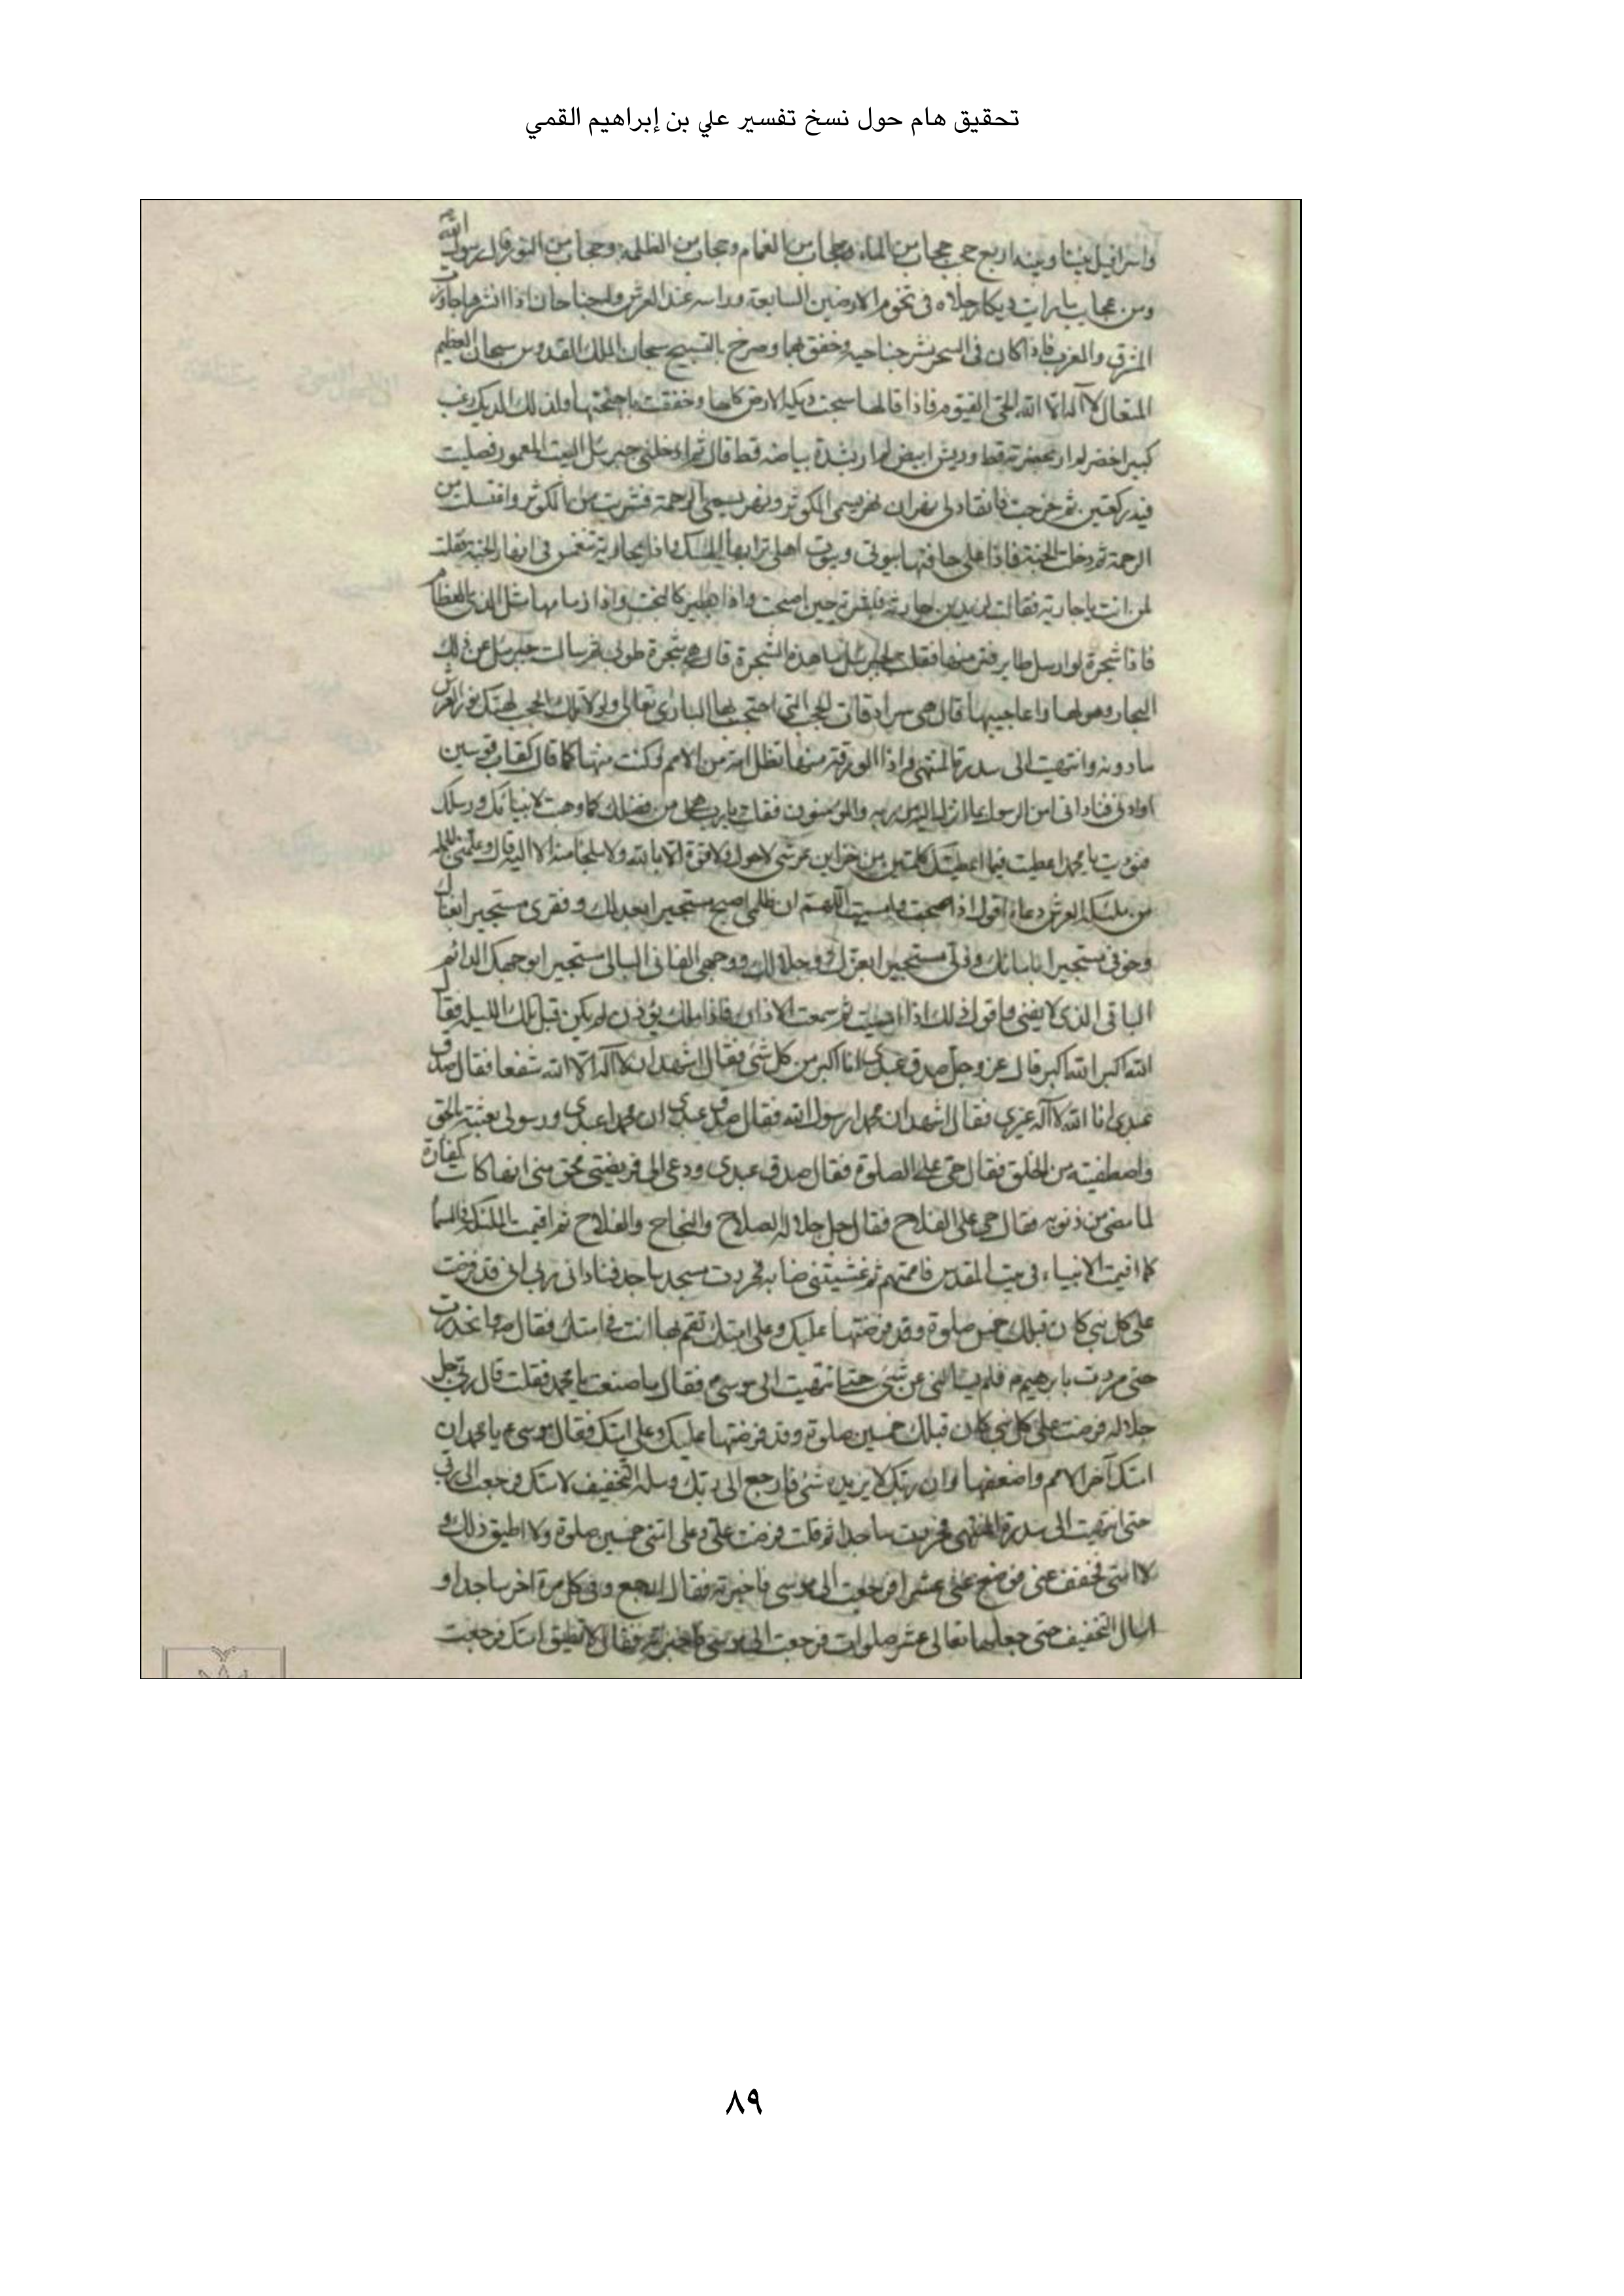 تحقيق هام حول نسخ تفسير علي بن إبراهيم القمي
واسرافيل بيننا وبينه اربع حجب حجاب من الماء وحجاب من الغمام وحجاب من الظلمة وحجاب من النور قال رسول الله
ومن عجايب ما رايت ديكا رجلاه فى تخوم الارضين السابعة وراسه عند العرش وله جناحان اذا انشرهما جاوزت
المشرق والمغرب فاذا كان فى السحر نشر جناحيه وخفق بهما وصرخ بالتسبيح سبحان الملك القدوس سبحان العظيم
المتعال لا اله الا الله الحى القيوم فاذا قالها سبحت ديكة الارض كلها وخفقت باجنحتها ولذلك الديك زغب
كبير اخضر لم ار كخضرته قط وريش ابيض لم ار بشدة بياضه قط قال ثم ادخلنى جبرئيل البيت المعمور فصليت
فيه ركعتين ثم خرجت فانقاد لى نهران نهر يسمى الكوثر ونهر يسمى الرحمة فشربت من الكوثر واغتسلت من
الرحمة ثم دخلت الجنة فاذا على حافتها بيوتى وبيوت اهلى ترابها المسك واذا بجارية تنغمس فى انهار الجنة فقلت
لمن انت يا جارية فقالت لزيد بن حارثه فبشرته حين اصبحت واذا بطير كالبخت واذا زمانها مثل العظام
فاذا شجرة لو ارسل طاير فقلت جبرئيل ما هذه الشجرة قال هى شجرة طوبى سالت جبرئيل عن تلك
البحار وهولها واعاجيبها قال هى سرادقات الحجب التى احتجب بها البارى تعالى ولولا تلك الحجب لهتك نور العرش
ما دونه وانتهيت الى سدرة المنتهى واذا الورقة منها تظل امة من الامم وكنت منها كما قال كقاب قوسين
او ادنى فنادانى امن الرسول بما انزل اليه من ربه والمؤمنون فقلت يا رب من فضلك كما وهبت لانبيائك ورسلك
فنوديت يا محمد اعطيت فيما اعطيتك كلمتين من خزاين عرشى لا حول ولا قوة الا بالله ولا ملجا منه الا اليه قال وعلمنى
من ملئكة العرش دعاء اقول اذا اصبحت وامسيت اللهم ان ظلمى اصبح مستجيرا بعدلك وفقرى مستجيرا بغناك
وخوفى مستجيرا بامانك وذلى مستجيرا بعزك وجلالك ووجهى الفانى البالى مستجيرا بوجهك الدائم
الباقى الذى لا يفنى واقول ذلك اذا امسيت ثم سمعت الاذان فاذا ملك يؤذن لم يكن قبل تلك الليلة فقال
الله اكبر الله اكبر قال عز وجل صدق عبدى انا اكبر من كل شئ فقال اشهد ان لا اله الا الله شفعا فقال صدق
عبدى انا الله لا اله غيرى فقال اشهد ان محمدا رسول الله فقال صدق عبدى ان محمدا عبدى ورسولى بعثته بالحق
واصطفيته من الخلق فقال حى على الصلوة فقال صدق عبدى ودعى الى فريضتى بحق انها كانت كفارة
لما مضى من ذنوبه فقال حى على الفلاح فقال جل جلاله الصلاح والنجاح والفلاح ثم اقمت الملئكة فى السما
كما اقمت الانبياء فى بيت المقدس فاممتهم ثم غشيتنى ضبابة فخررت ساجدا فنادانى ربى انى قد فرضت
على كل نبى كان قبلك خمسين صلوة وقد فرضتها عليك وعلى امتك تقم بها انت فى امتك فقال فانحدرت
حتى مررت بابرهيم فلم يسالنى عن شئ حتى انتهيت الى موسى فقال ما صنعت يا محمد فقلت قال ربى جل
جلاله فرضت على كل نبى كان قبلك خمسين صلوة وقد فرضتها عليك وعلى امتك فقال موسى يا محمد ان
امتك آخر الامم واضعفها وان ربك لا يزيده شئ فارجع الى ربك وسله التخفيف لامتك فرجعت الى ربى
حتى انتهيت الى سدرة المنتهى فخررت ساجدا ثم قلت فرضت على وعلى امتى خمسين صلوة ولا اطيق ذلك و
لا امتى فخفف عنى فوضع على عشرا فرجعت الى موسى فاخبرته فقال ارجع وفى كل مرة اخر ساجدا و
اسال التخفيف حتى جعلها تعالى عشر صلوات فرجعت الى موسى فاخبرته فقال لا تطيق امتك فرجعت
٨٩